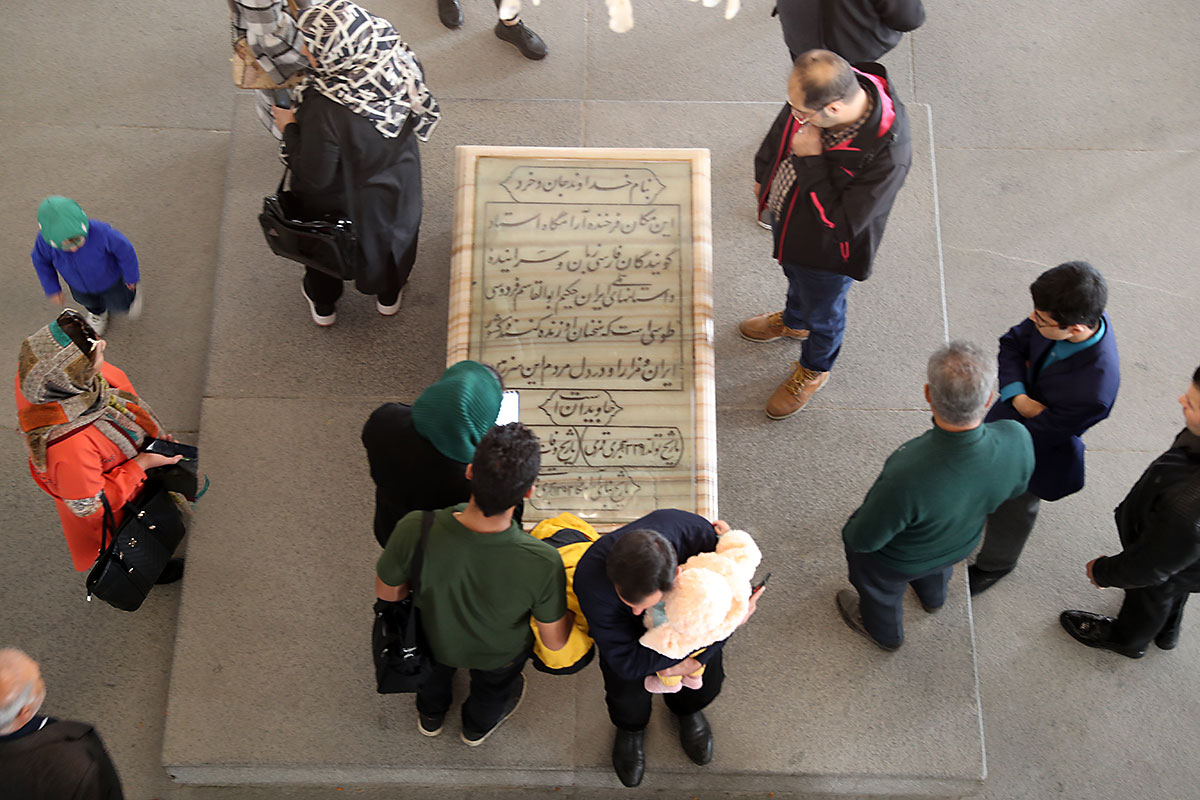 بنام خداوند جان و خرد
این مکان فرخنده آرامگاه استاد
گویندگان فارسی زبان و سراینده
داستانهای ملی ایران حکیم ابوالقاسم فردوسی
طوسی است که سخنان او زنده کننده کشور
ایران و مزار او در دل مردم این سرزمین
جاویدان است
تاریخ تولد ۳۲۹ هجری قمری تاریخ وفات
تاریخ بنای